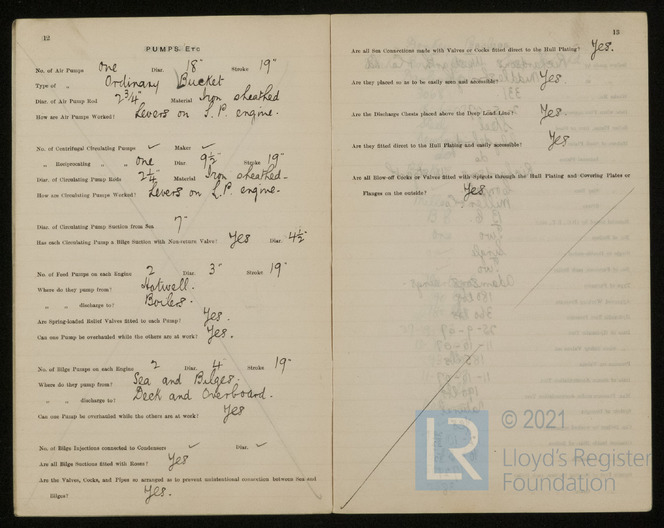 12
PUMPS, Etc
No. of Air Pumps one Diar. 18" Stroke 19"
Type of " Ordinary Bucket
Diar. of Air Pump Rod 2 3/4" Material Iron sheathed
How are Air Pumps Worked? Levers on L.P. engine.
No. of Centrifugal Circulating Pumps ✓ Maker ✓
" Reciprocating " " one Diar 9 1/2" Stroke 19"
Diar. of Circulating Pump Rods 2 1/4" Material Iron sheathed
How are Circulating Pumps Worked? Levers on L.P. engine.
Diar. of Circulating Pump Suction from Sea 7"
Has each Circulating Pump a Bilge Suction with Non-return Valve? Yes Diar. 4 1/2"
No. of Feed Pumps on each Engine 2 Diar. 3" Stroke 19"
Where do they pump from? Hotwell.
" " discharge to? Boilers.
Are Spring-loaded Relief Valves fitted to each Pump? Yes.
Can one Pump be overhauled while the others are at work? Yes.
No. of Bilge Pumps on each Engine 2 Diar. 4" Stroke 19"
Where do they pump from? Sea and Bilges.
" " discharge to? Deck and Overboard.
Can one Pump be overhauled while the others are at work? Yes
No. of Bilge Injections connected to Condensers ✓ Diar. ✓
Are all Bilge Suctions fitted with Roses? Yes
Are the Valves, Cocks, and Pipes so arranged as to prevent unintentional connection between Sea and
Bilges? Yes.
13
Are all Sea Connections made with Valves or Cocks fitted direct to the Hull Plating? Yes.
Are they placed so as to be easily seen and accessible? Yes
Are the Discharge Chests placed above the Deep Load Line? Yes.
Are they fitted direct to the Hull Plating and easily accessible? Yes
Are all Blow-off Cocks or Valves fitted with Spigots through the Hull Plating and Covering Plates or
Flanges on the outside? Yes.
LR
© 2021
Lloyd's Register
Foundation